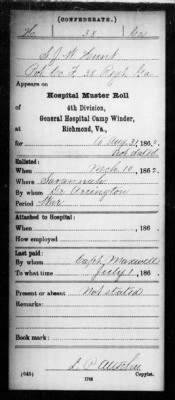 (CONFEDERATE.)
38 Ga
S. J. W. Hunt
Co. F, 38 Regt. Ga
Appears on
Hospital Muster Roll
of
4th Division,
General Hospital Camp Winder,
at
Richmond, Va.,
for to Aug 31, 1862
not dated
Enlisted:
When Mch 10, 1862
Where Savannah
By whom Dr Arrington
Period War
Attached to Hospital:
When , 186 .
How employed
Last paid:
By whom Capt. Maxwell
To what time July 1, 186 .
Present or absent Not stated
Remarks:
Book mark:
(645)
Copyist.